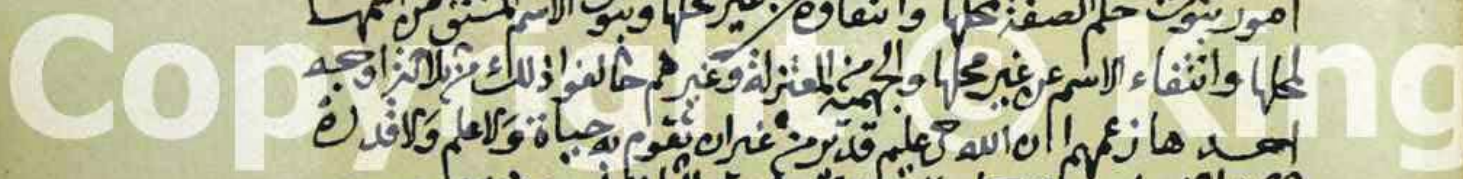 امور ثبوت حكم الصفة لمحلها وانتفاوه عن غير محلها وثبوت الاسم المشتق من اسمها
لمحلها وانتفاء الاسم عن غير محلها والجهمية من المعتزلة وغيرهم خالفوا ذلك من ثلاثة اوجه
احدها زعمهم ان الله حي عليم قدير من غير ان تقوم به حياة ولا علم ولا قدرة
Copyright © King